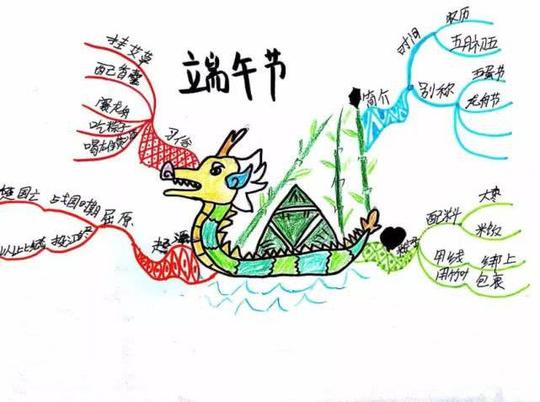 端午节
挂艾草
配香囊
赛龙舟
吃粽子
喝雄黄酒
习俗
简介
时间
农历
五月初五
别称
五蛋节
龙舟节
楚国亡
战国时期
屈原
投江
起源
配料
大枣
米饭
用线
绑上
用竹叶
包裹